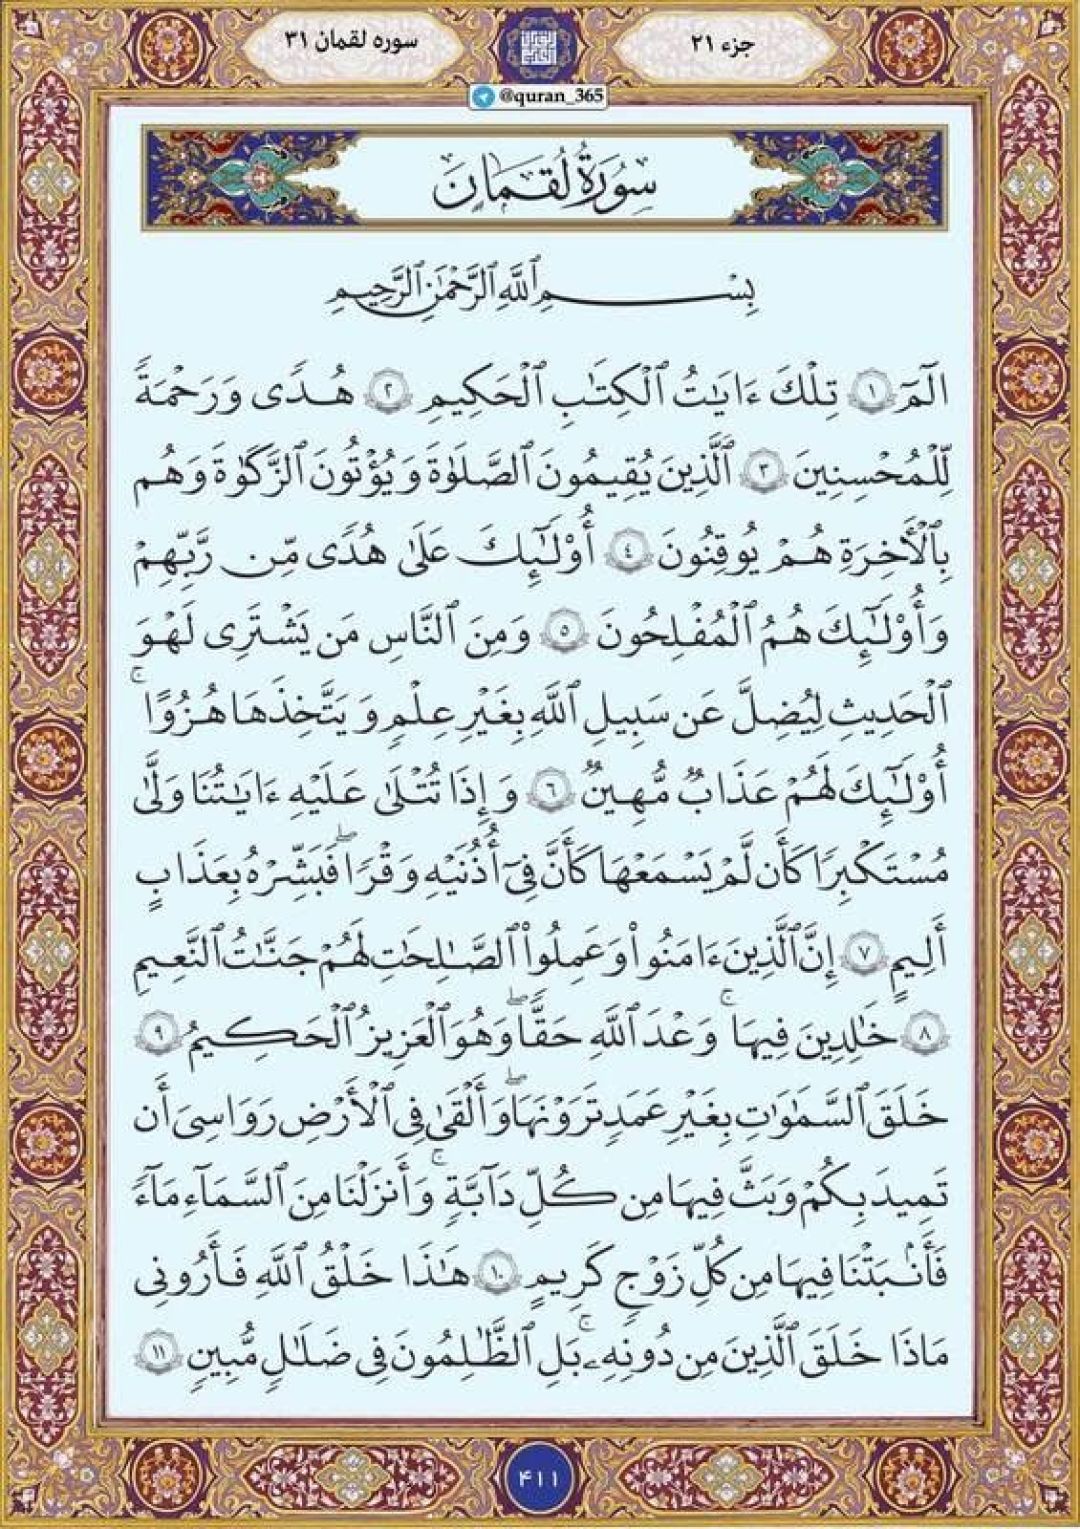 جزء ۲۱
سوره لقمان ۳۱
@quran_365
سُورَةُ لُقۡمَان
بِسۡمِ ٱللَّهِ ٱلرَّحۡمَٰنِ ٱلرَّحِيمِ
الٓمٓ ١ تِلۡكَ ءَايَٰتُ ٱلۡكِتَٰبِ ٱلۡحَكِيمِ ٢ هُدٗى وَرَحۡمَةٗ
لِّلۡمُحۡسِنِينَ ٣ ٱلَّذِينَ يُقِيمُونَ ٱلصَّلَوٰةَ وَيُؤۡتُونَ ٱلزَّكَوٰةَ وَهُم
بِٱلۡأٓخِرَةِ هُمۡ يُوقِنُونَ ٤ أُوْلَٰٓئِكَ عَلَىٰ هُدٗى مِّن رَّبِّهِمۡ
وَأُوْلَٰٓئِكَ هُمُ ٱلۡمُفۡلِحُونَ ٥ وَمِنَ ٱلنَّاسِ مَن يَشۡتَرِي لَهۡوَ
ٱلۡحَدِيثِ لِيُضِلَّ عَن سَبِيلِ ٱللَّهِ بِغَيۡرِ عِلۡمٖ وَيَتَّخِذَهَا هُزُوًاۚ
أُوْلَٰٓئِكَ لَهُمۡ عَذَابٞ مُّهِينٞ ٦ وَإِذَا تُتۡلَىٰ عَلَيۡهِ ءَايَٰتُنَا وَلَّىٰ
مُسۡتَكۡبِرٗا كَأَن لَّمۡ يَسۡمَعۡهَا كَأَنَّ فِيٓ أُذُنَيۡهِ وَقۡرٗاۖ فَبَشِّرۡهُ بِعَذَابٍ
أَلِيمٍ ٧ إِنَّ ٱلَّذِينَ ءَامَنُواْ وَعَمِلُواْ ٱلصَّٰلِحَٰتِ لَهُمۡ جَنَّٰتُ ٱلنَّعِيمِ
٨ خَٰلِدِينَ فِيهَاۚ وَعۡدَ ٱللَّهِ حَقّٗاۖ وَهُوَ ٱلۡعَزِيزُ ٱلۡحَكِيمُ ٩
خَلَقَ ٱلسَّمَٰوَٰتِ بِغَيۡرِ عَمَدٖ تَرَوۡنَهَاۖ وَأَلۡقَىٰ فِي ٱلۡأَرۡضِ رَوَٰسِيَ أَن
تَمِيدَ بِكُمۡ وَبَثَّ فِيهَا مِن كُلِّ دَآبَّةٖۚ وَأَنزَلۡنَا مِنَ ٱلسَّمَآءِ مَآءٗ
فَأَنۢبَتۡنَا فِيهَا مِن كُلِّ زَوۡجٖ كَرِيمٍ ١٠ هَٰذَا خَلۡقُ ٱللَّهِ فَأَرُونِي
مَاذَا خَلَقَ ٱلَّذِينَ مِن دُونِهِۦۚ بَلِ ٱلظَّٰلِمُونَ فِي ضَلَٰلٖ مُّبِينٖ ١١
۴۱۱